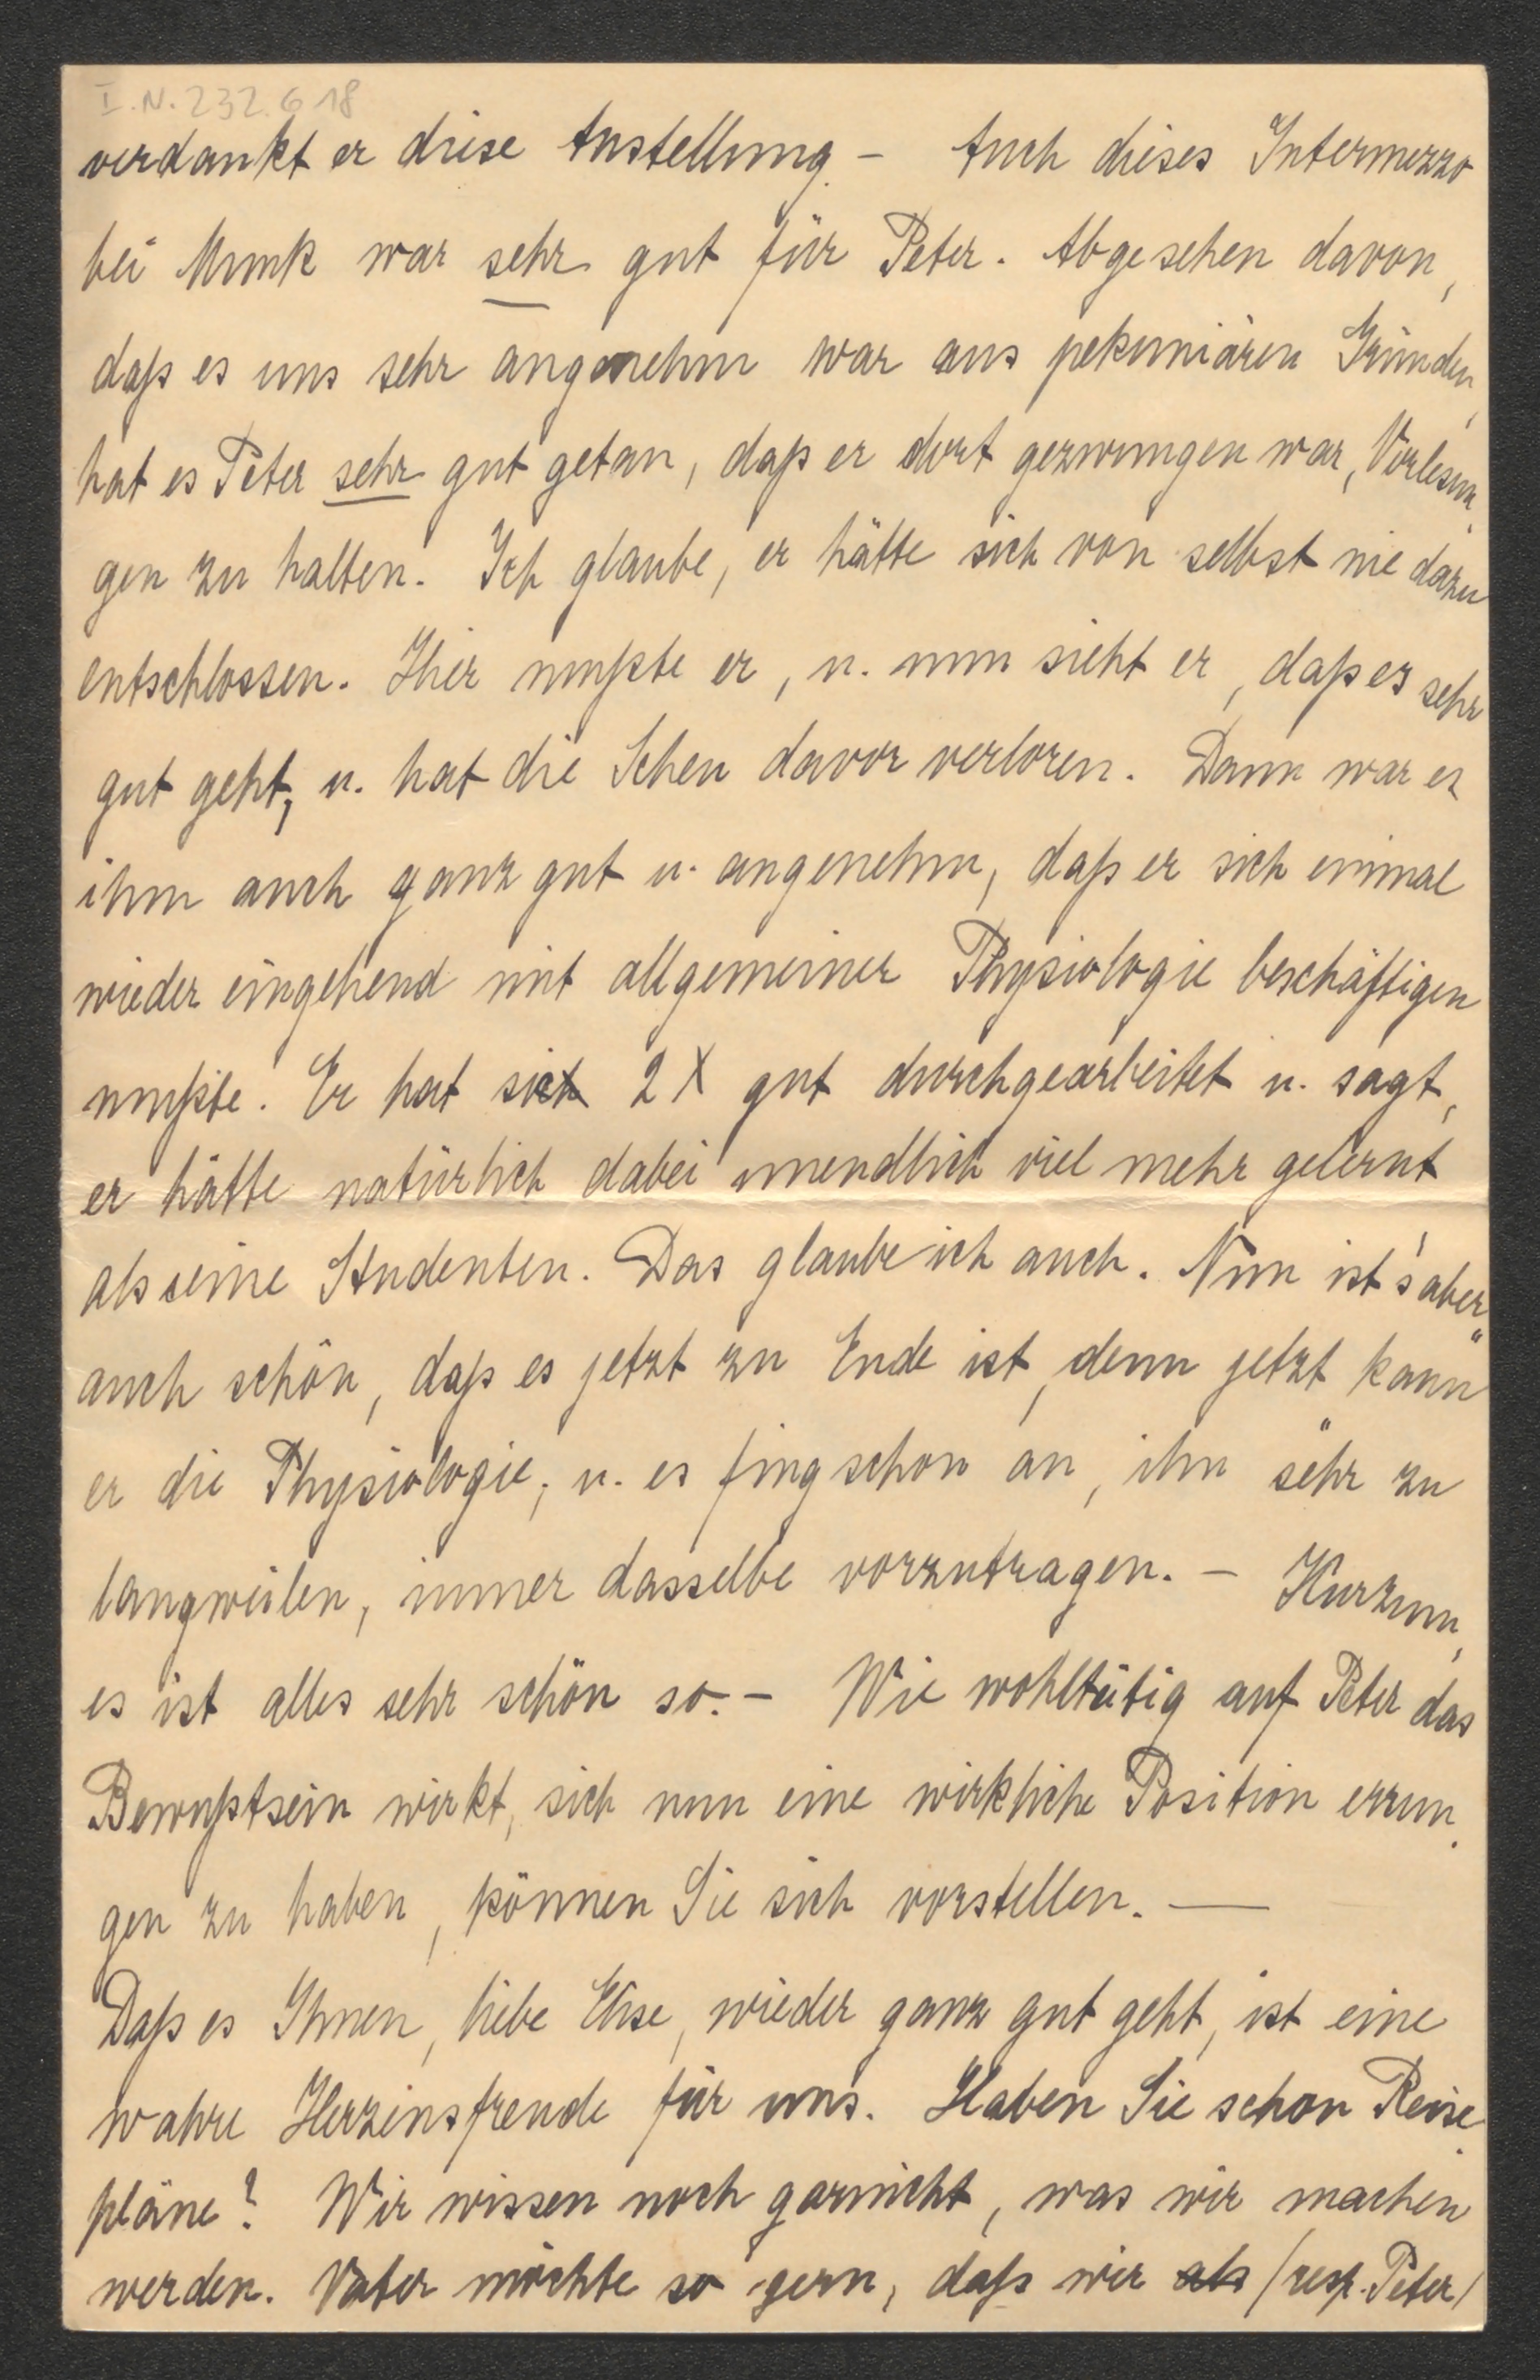 I.N. 232.618
verdankt er diese Anstellung. – Auch dieses Intermezzo
bei Munk war sehr gut für Peter. Abgesehen davon,
daß es uns sehr angenehm war aus pekuniären Gründen,
hat es Peter sehr gut getan, daß er dort gezwungen war, Vorlesun-
gen zu halten. Ich glaube, er hätte sich von selbst nie dazu
entschlossen. Hier mußte er, u. nun sieht er, daß es sehr
gut geht, u. hat die Scheu davor verloren. Dann war es
ihm auch ganz gut u. angenehm, daß er sich einmal
wieder eingehend mit allgemeiner Physiologie beschäftigen
mußte. Er hat sich 2 X gut durchgearbeitet u. sagt,
er hätte natürlich dabei unendlich viel mehr gelernt
als seine Studenten. Das glaube ich auch. Nun ist's aber
auch schön, daß es jetzt zu Ende ist, denn jetzt „kann"
er die Physiologie, u. es fing schon an, ihn sehr zu
langweilen, immer dasselbe vorzutragen. – Kurzum,
es ist alles sehr schön so. – Wie wohltätig auf Peter das
Bewußtsein wirkt, sich nun eine wirkliche Position errun-
gen zu haben, können Sie sich vorstellen. —
Daß es Ihnen, liebe Elise, wieder ganz gut geht, ist eine
wahre Herzensfreude für uns. Haben Sie schon Reise-
pläne? Wir wissen noch garnicht, was wir machen
werden. Vater möchte so gern, daß wir als (resp. Peter)